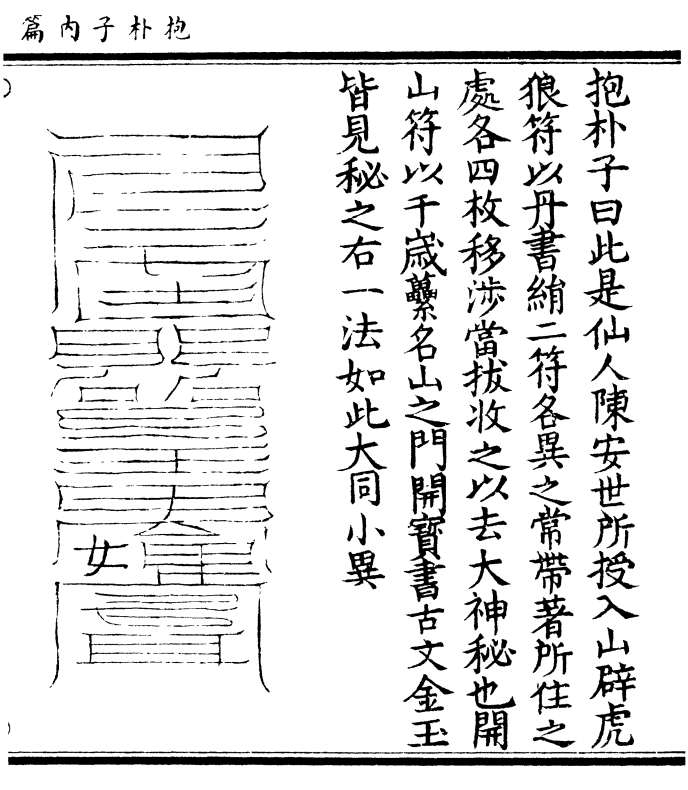 抱朴子内篇
抱朴子曰此是仙人陳安世所授入山辟虎
狼符以丹書絹二符各異之常帶著所住之
處各四枚移涉當拔收之以去大神秘也開
山符以千歲虆名山之門開寳書古文金玉
皆見秘之右一法如此大同小異
女